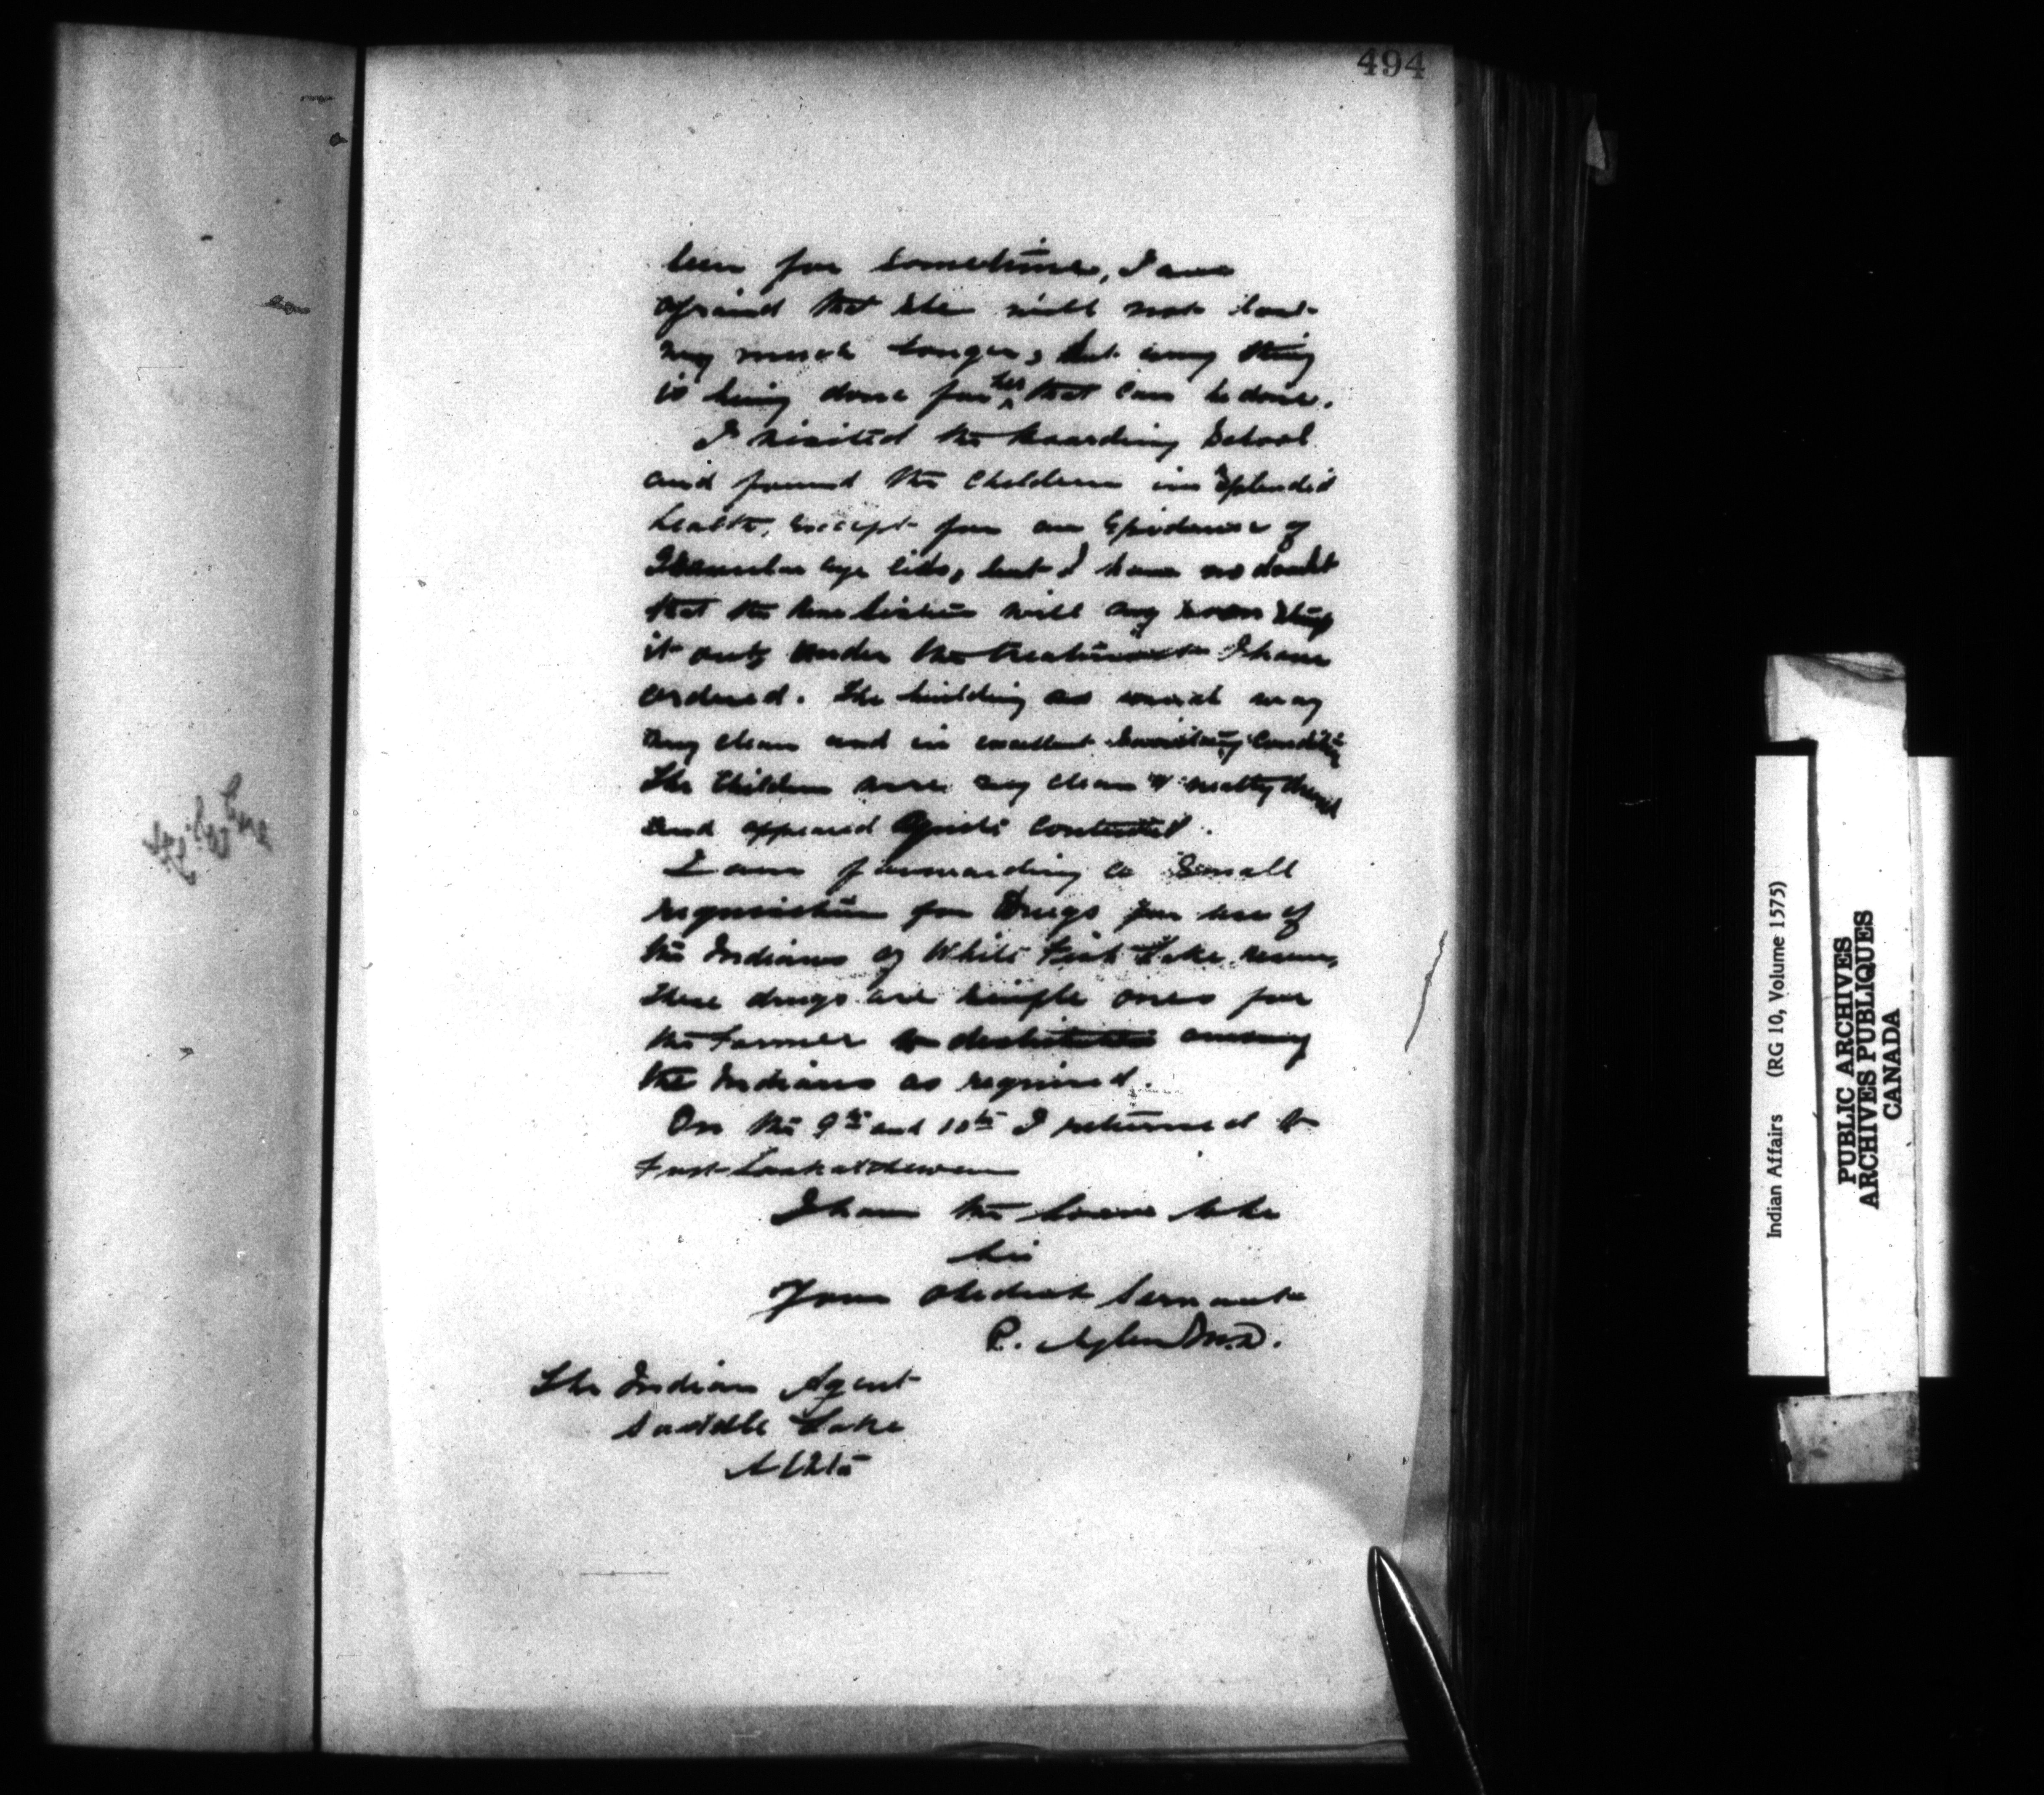 494
been for sometime, I am
afraid that she will not last
very much longer, but every thing
is being done for her that can be done.
I visited the Boarding School
and found the children in splendid
health, except for an Epidemic of
Granular eye lids, but I have no doubt
that the Rev Sisters will very soon stop
it out, under the treatment I have
ordered. The building as usual was
very clean and in excellent Sanitary Condition
The Children were very clean & neatly dressed
and appeared quite contented.
I am forwarding a small
requisition for Drugs for use of
the Indians of White Fish Lake reserve,
these drugs are simple ones for
the Farmer to distribute among
the Indians as required.
On the 9th and 10th I returned to
Fort Saskatchewan
I have the honor to be
Sir
Your Obedient Servant
P. Aylen M.D.
The Indian Agent
Saddle Lake
Alta
Indian Affairs (RG 10, Volume 1575)
PUBLIC ARCHIVES
ARCHIVES PUBLIQUES
CANADA